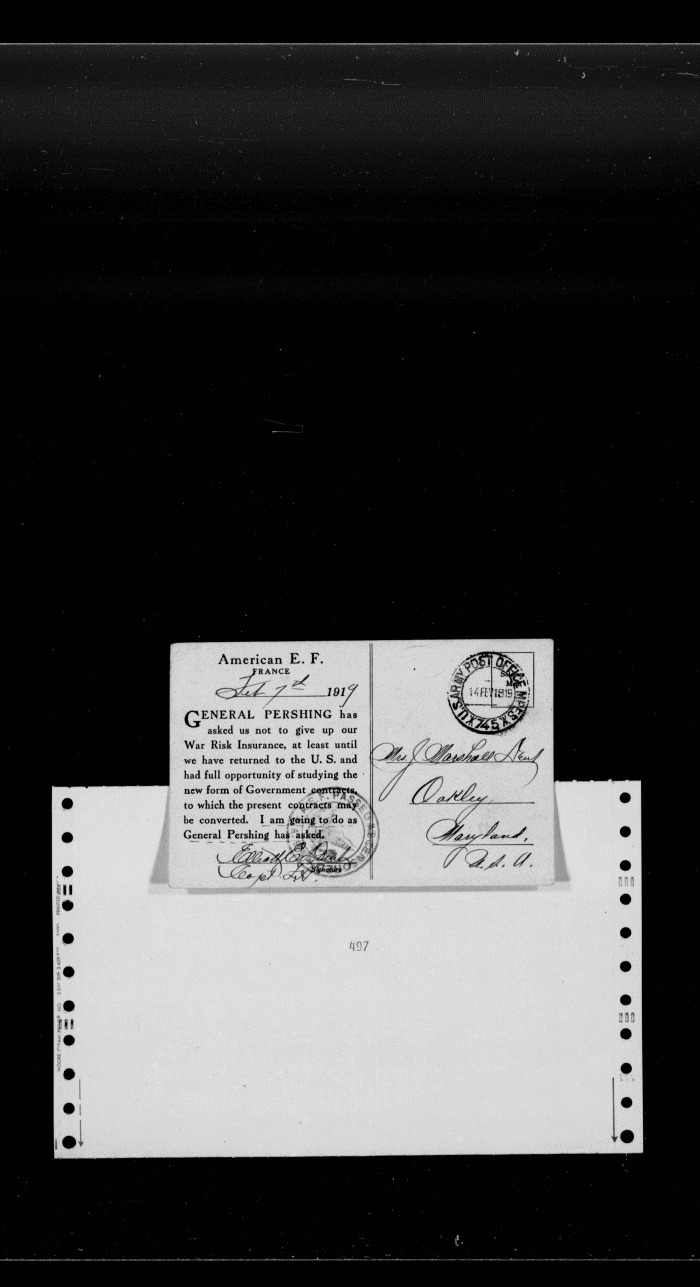 American E. F.
FRANCE
Feb 7th 1919
GENERAL PERSHING has
asked us not to give up our
War Risk Insurance, at least until
we have returned to the U. S. and
had full opportunity of studying the
new form of Government contracts,
to which the present contracts may
be converted. I am going to do as
General Pershing has asked.
Elliott
Capt. Inf.
Signature
A.E.F. PASSED AS CENSORED
U.S. ARMY POST OFFICE M.P.E.S.
14 FEV 1919
745
Mrs J Marshall Dent
Oakley,
Maryland,
U. S. A.
497